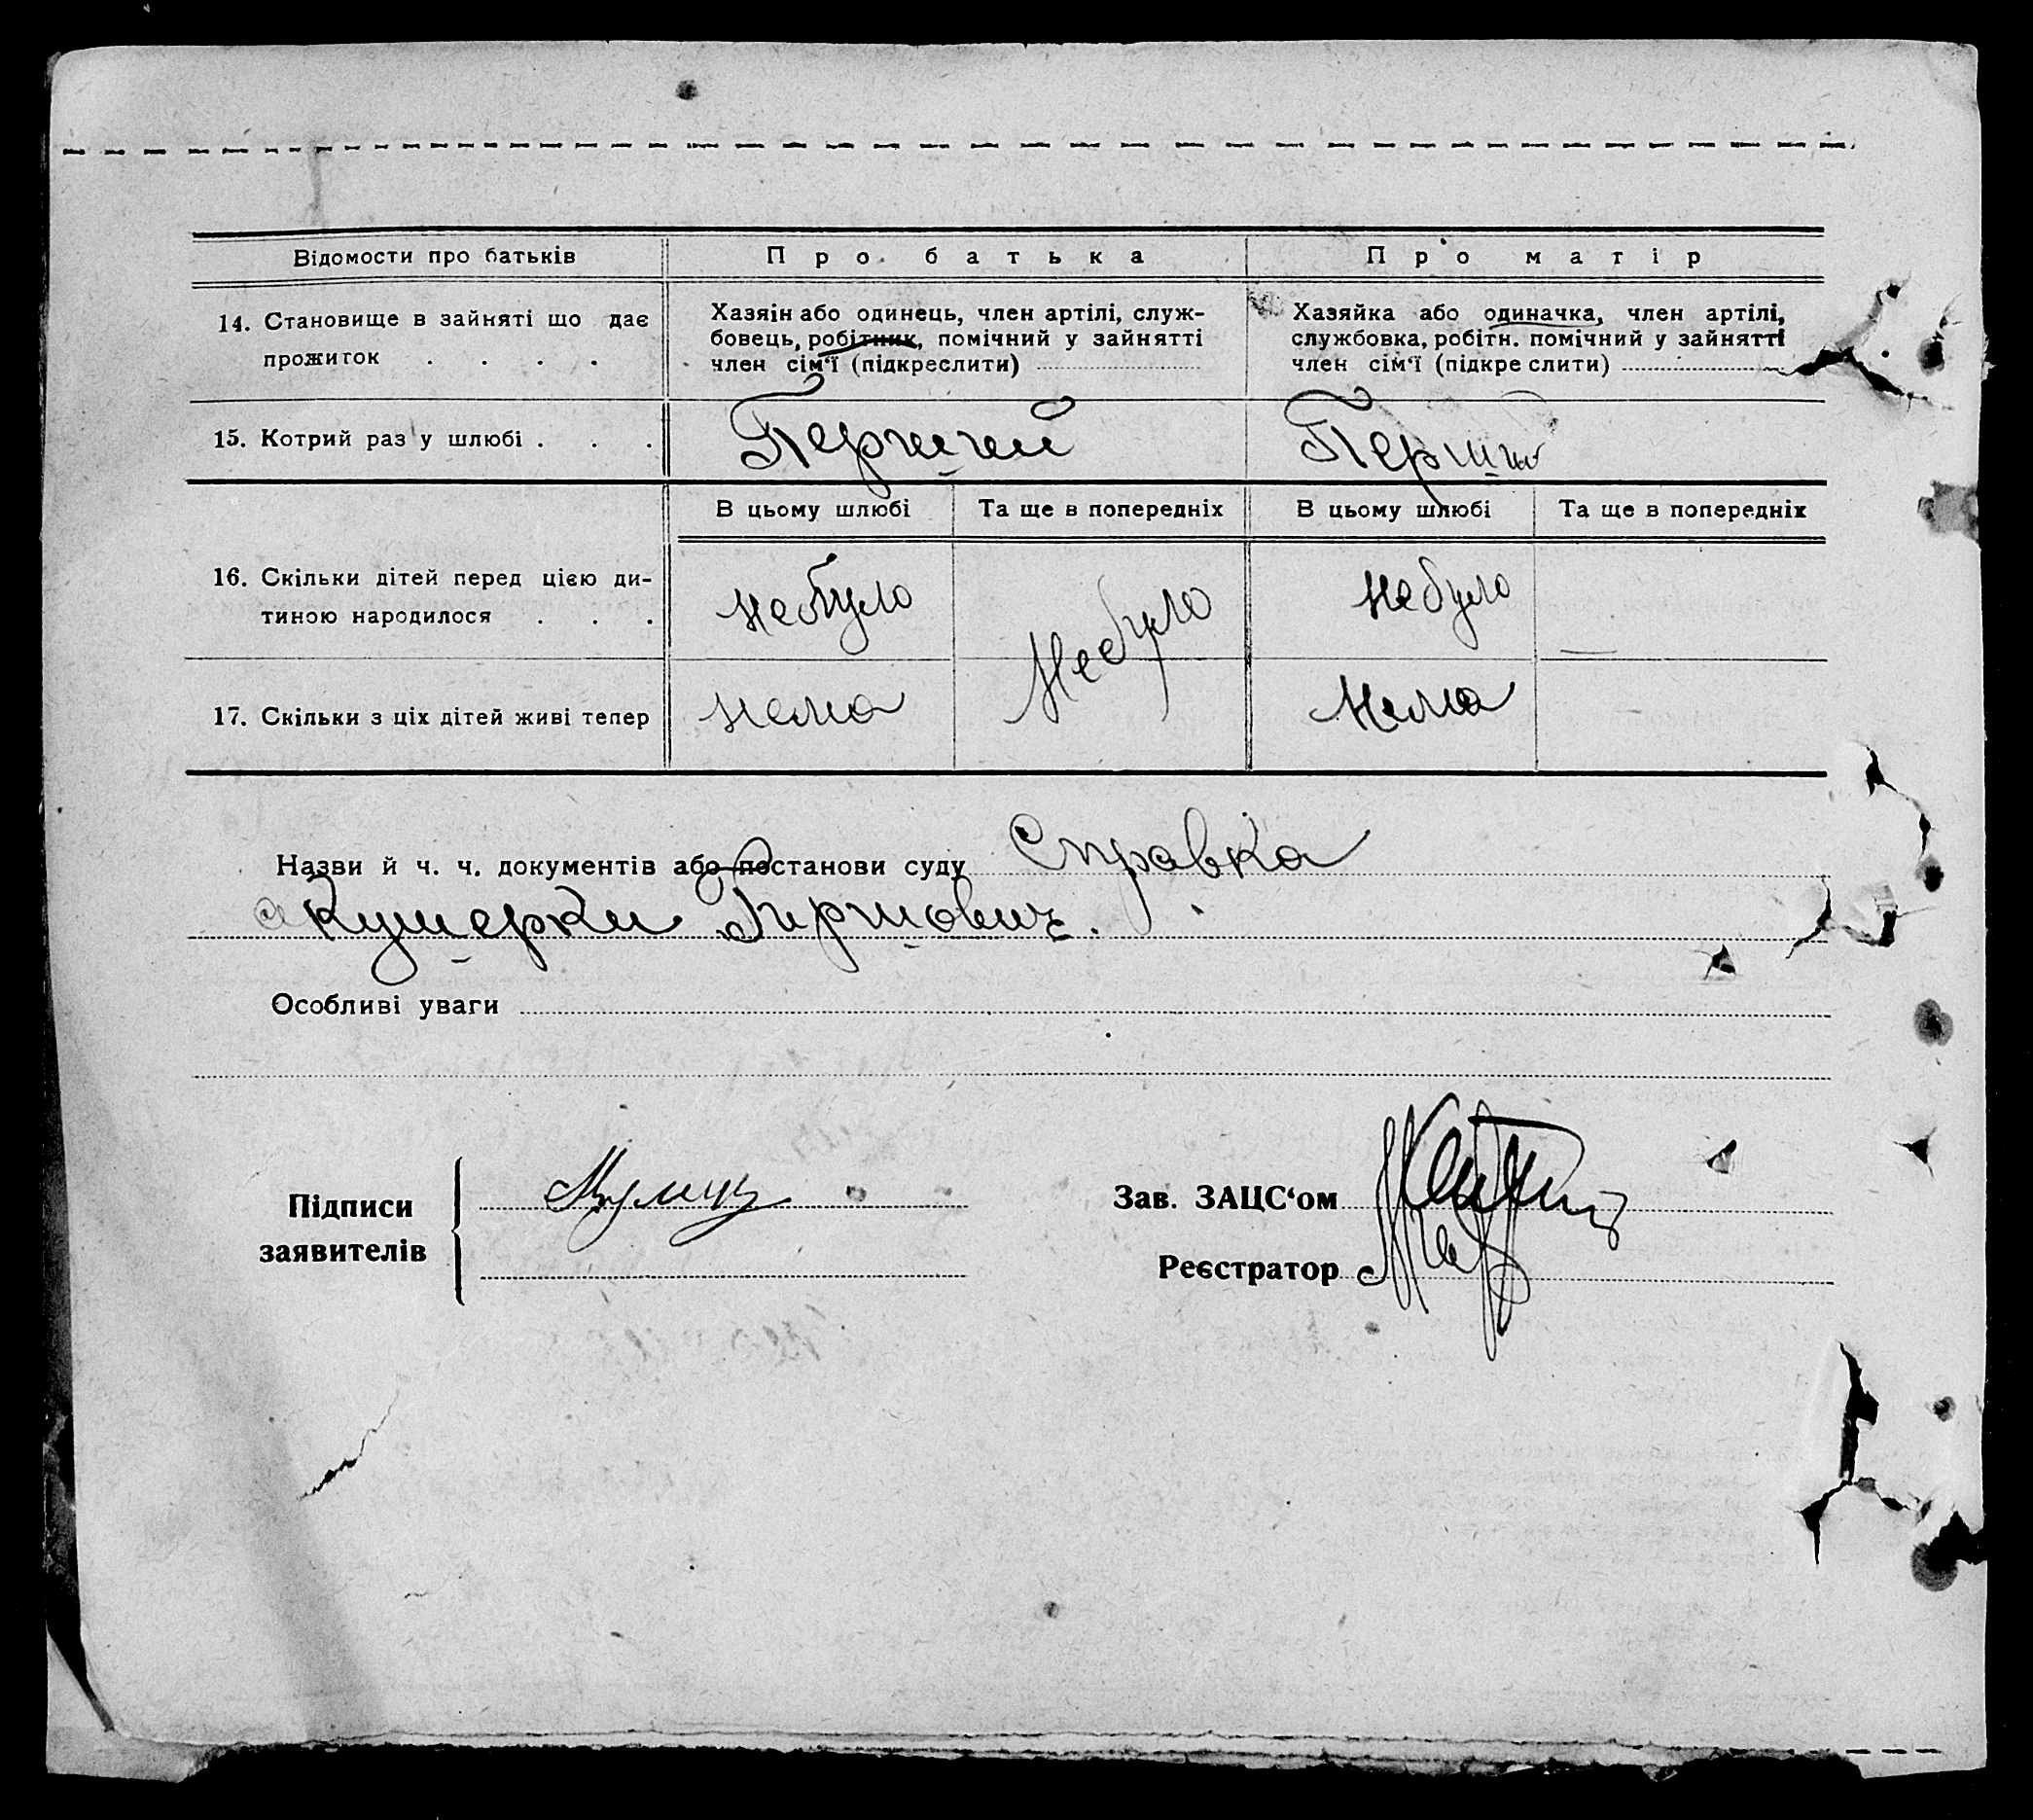 Відомости про батьків
Про батька
Про матір
14. Становище в зайняті що дає
прожиток . . . .
Хазяін або одинець, член артілі, служ-
бовець, робітник, помічний у зайнятті
член сім‘ї (підкреслити)
Хазяйка або одиначка, член артілі,
службовка, робітн. помічний у зайнятті
член сім‘ї (підкре слити)
15. Котрий раз у шлюбі . . .
Перший
Перший
В цьому шлюбі
Та ще в попередніх
В цьому шлюбі
Та ще в попередніх
16. Скільки дітей перед цією ди-
тиною народилося . . .
Небуло
Небуло
Небуло
17. Скільки з ціх дітей живі тепер
Нема
Нема
Назви й ч. ч. документів або постанови суду Справка
акушерки Гиршович.
Особливі уваги
Підписи
заявителів
Зав. ЗАЦС‘ом
Реєстратор